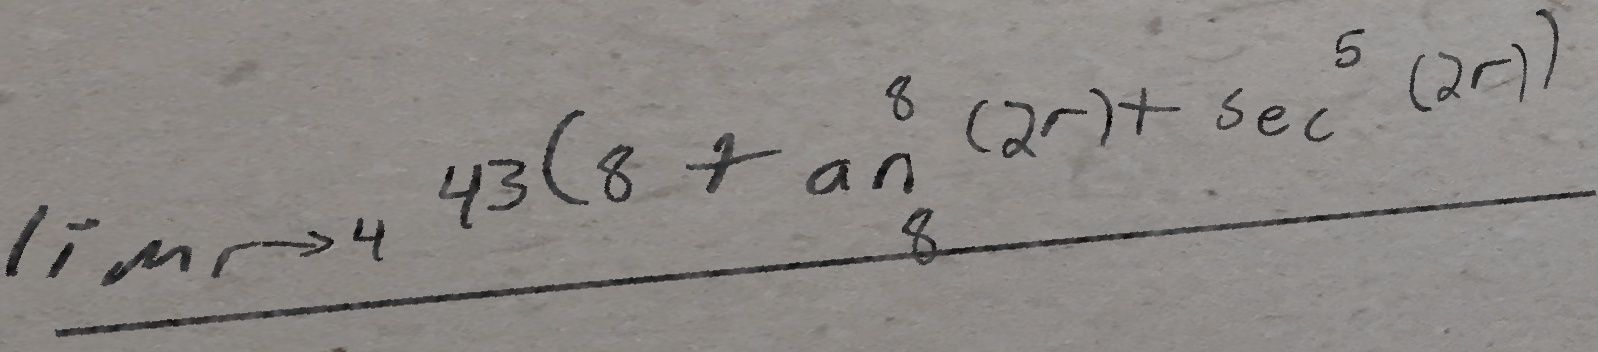 lim r→4 43(8 tan^8 (2r) + sec^5 (2r))
8